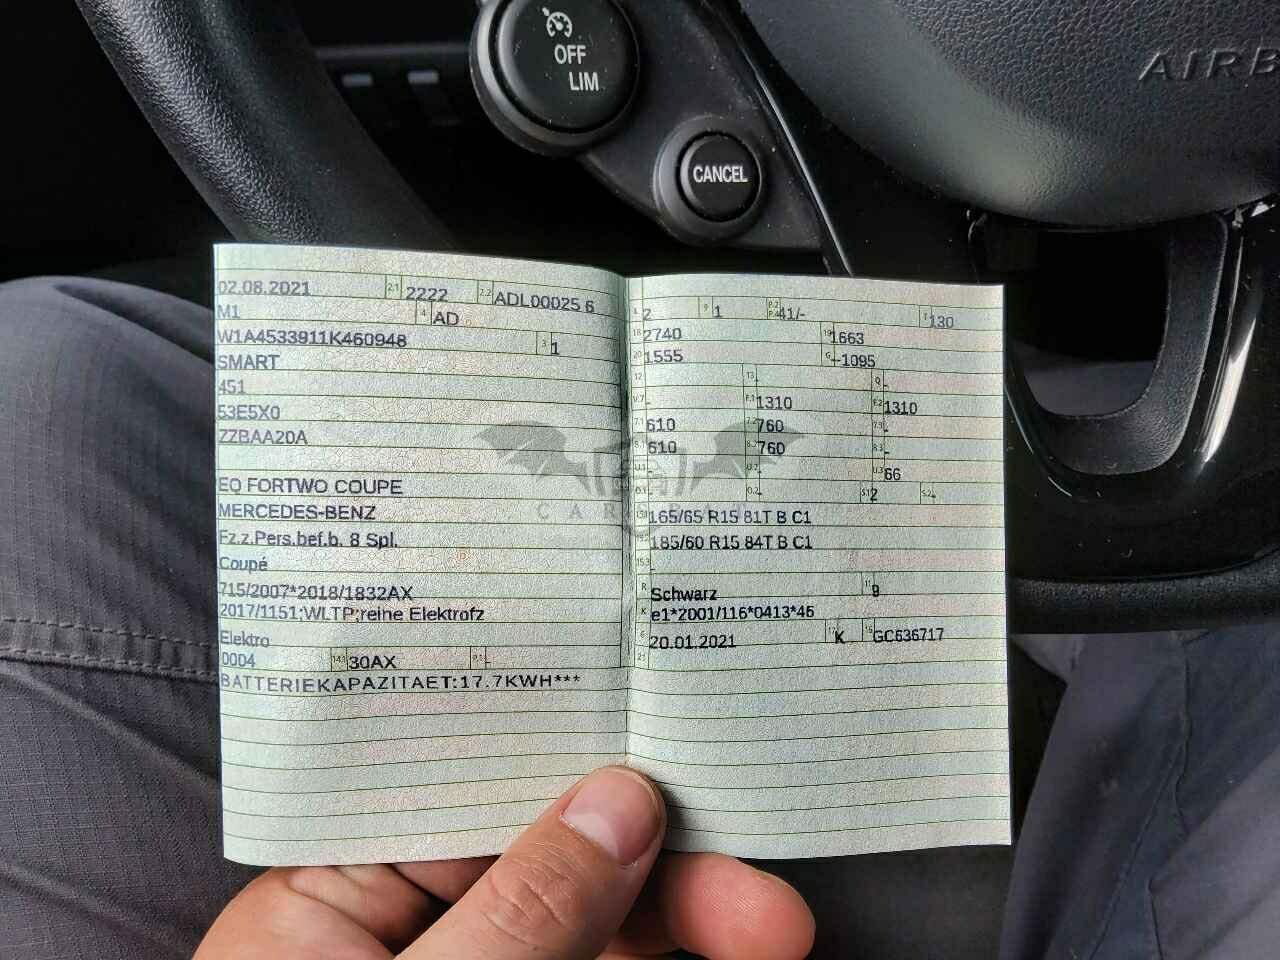 OFF
LIM
CANCEL
AIRB
02.08.2021 2.1 2222 2.2 ADL00025 6
M1 4 AD
W1A4533911K460948 3 1
SMART
451
53E5X0
ZZBAA20A
EQ FORTWO COUPE
MERCEDES-BENZ
Fz.z.Pers.bef.b. 8 Spl.
Coupé
715/2007*2018/1832AX
2017/1151;WLTP;reine Elektrofz
Elektro
0004 14.1 30AX P.1 -
BATTERIEKAPAZITAET:17.7KWH***
L 2 9 1 P.2 P.4 41/- T 130
18 2740 19 1663
20 1555 G -1095
12 - 13 - Q -
V.7 - F.1 1310 F.2 1310
7.1 610 7.2 760 7.3 -
8.1 610 8.2 760 8.3 -
U.1 - U.2 - U.3 66
O.1 - O.2 - S.1 2 S.2 -
165/65 R15 81T B C1
185/60 R15 84T B C1
15.3 -
R Schwarz 11 9
K e1*2001/116*0413*46
6 20.01.2021 17 K 16 GC636717
21